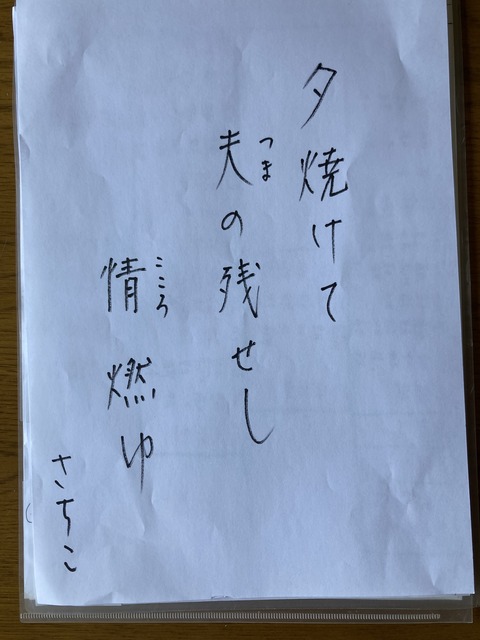 夕焼けて
夫の残せし
つま
情燃ゆ
こころ
さちこ